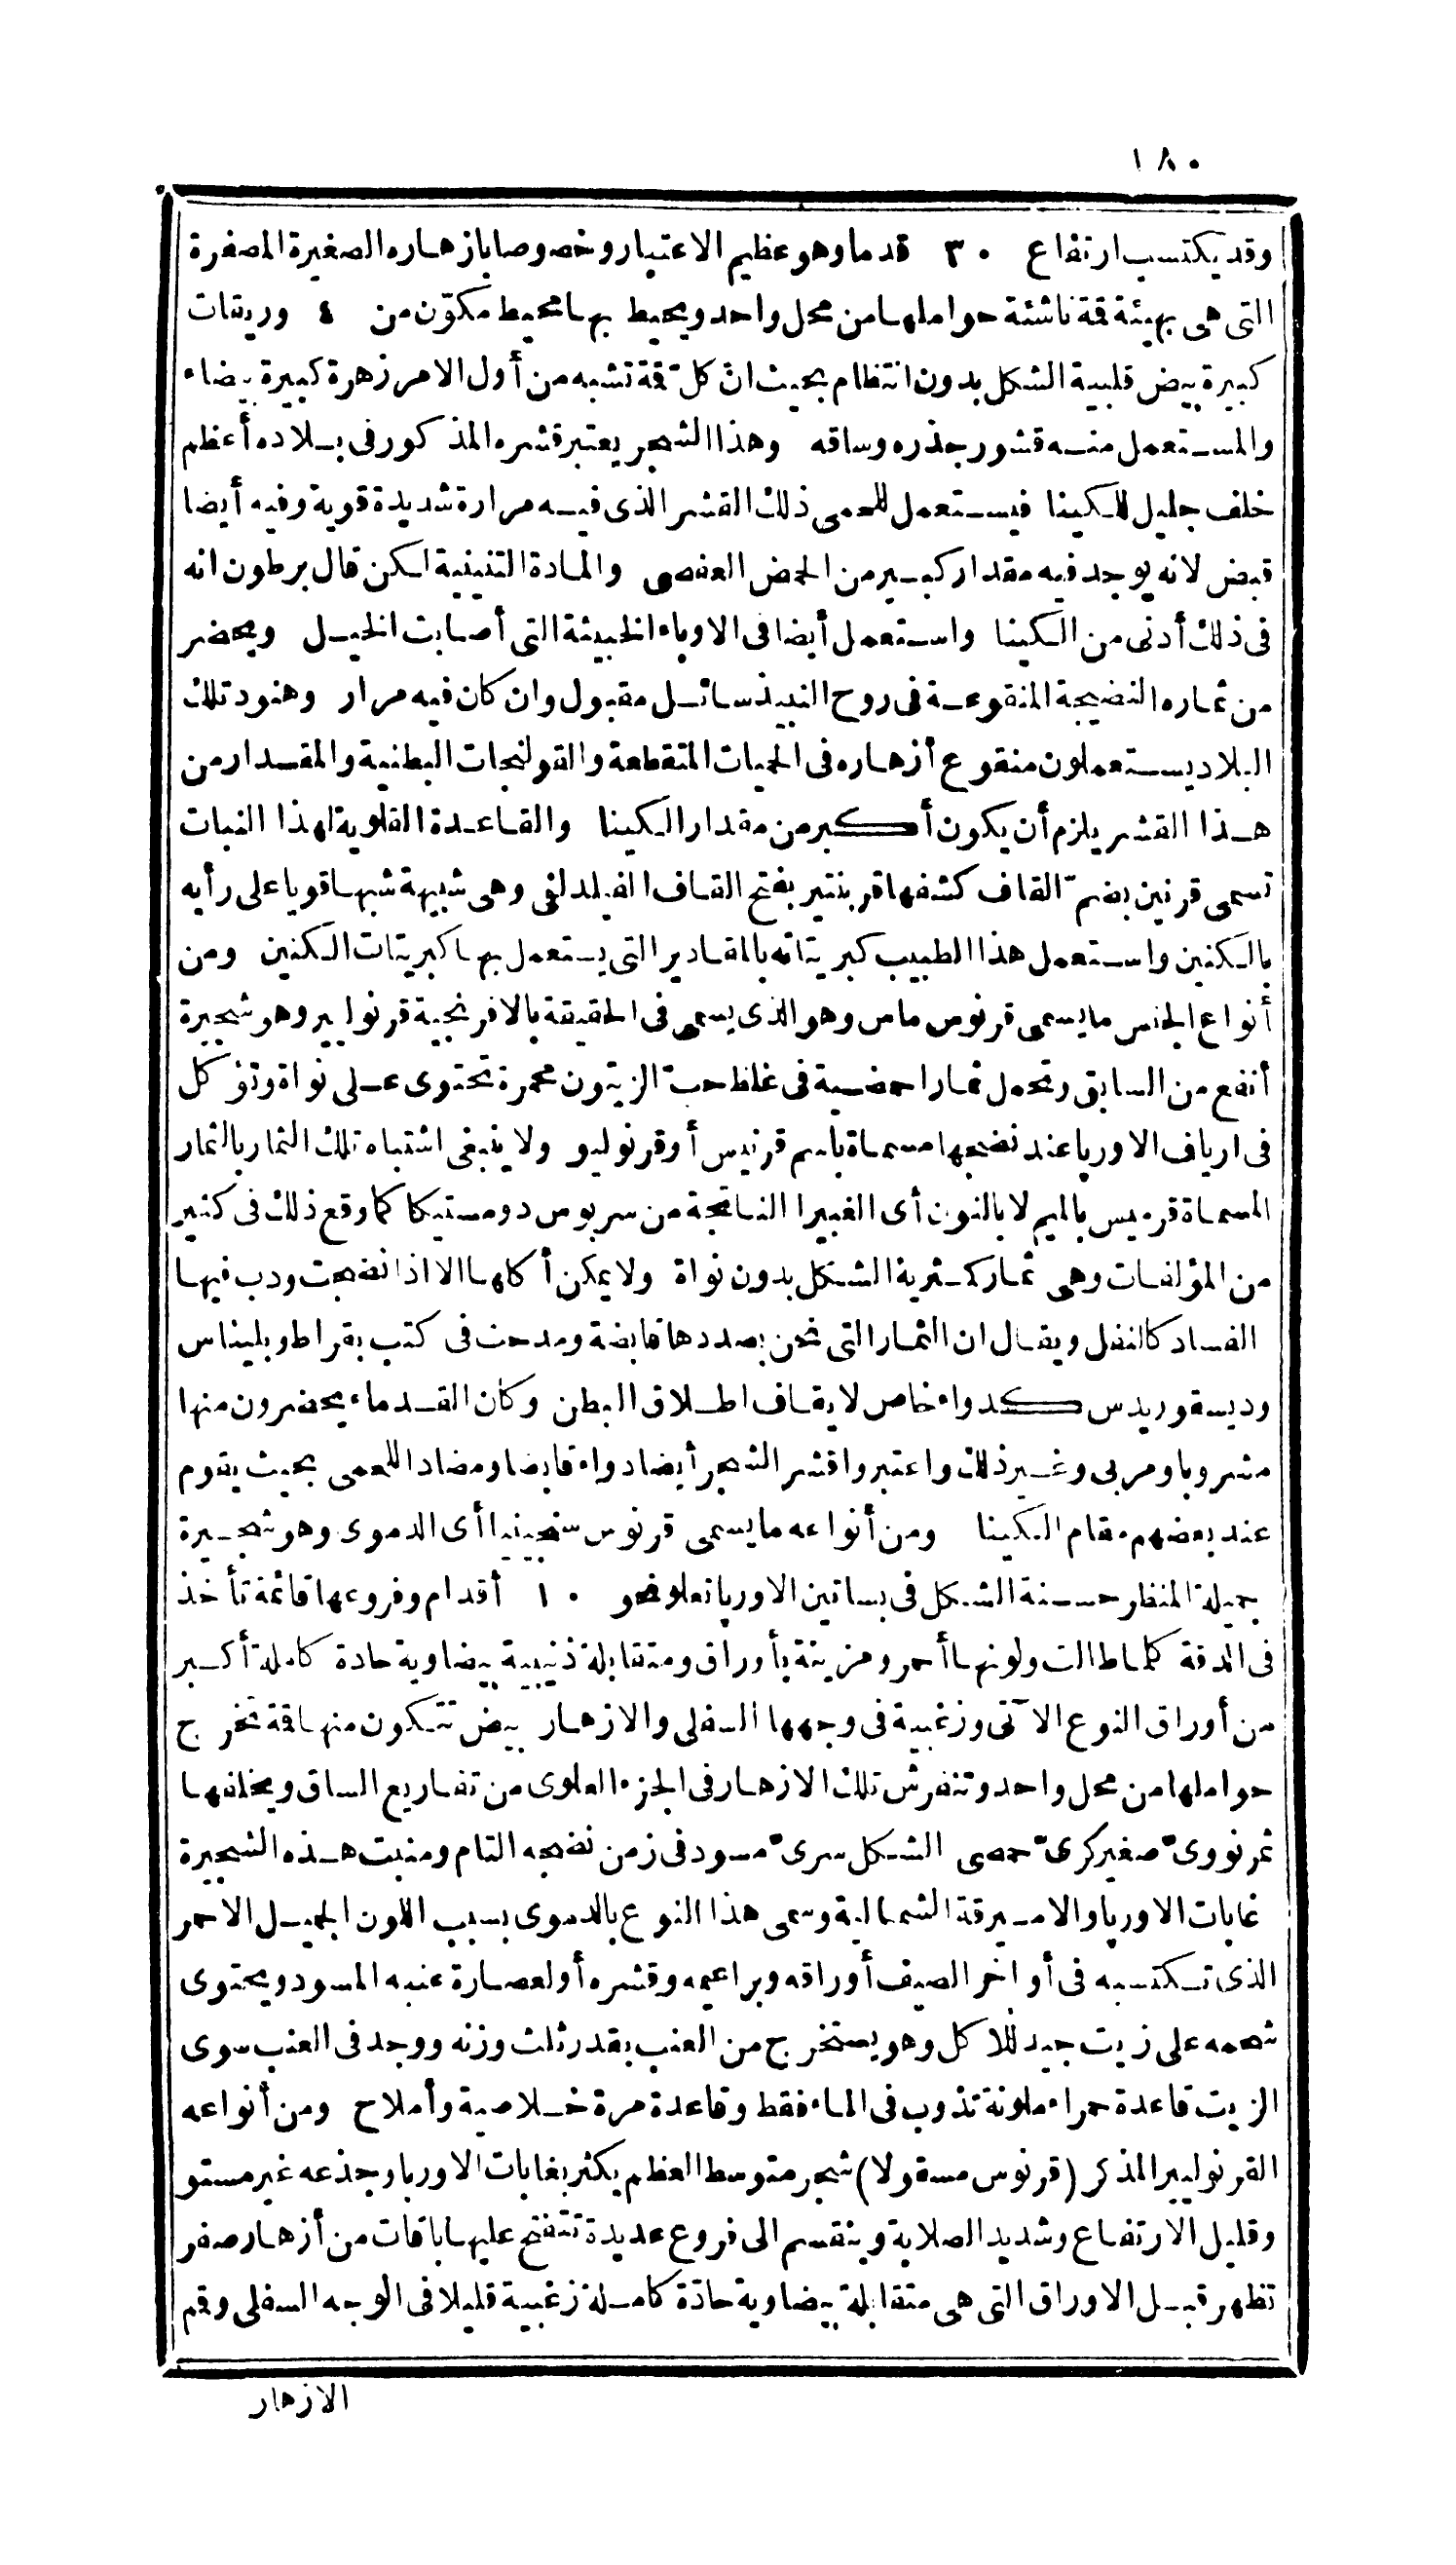 ١٨٠
وقد يكتسب ارتفاع ٣٠ قدما وهو عظيم الاعتبار وخصوصا بازهاره الصغيرة المصفرة
التى هى بهيئة قمة ناشئة حواملها من محل واحد ويحيط بها محيط مكوّن من ٤ وريقات
كبيرة بيض قلبية الشكل بدون انتظام بحيث انّ كل قمة تشبه من أول الامر زهرة كبيرة بيضاء
والمستعمل منه قشور جذره وساقه وهذا الشجر يعتبر قشره المذكور فى بلاده أعظم
خلف جليل للكينا فيستعمل للحمى ذلك القشر الذى فيه مرارة شديدة قوية وفيه أيضا
قبض لانه يوجد فيه مقدار كبير من الحمض العفصى والمادة التنينية لكن قال برطون انه
فى ذلك أدنى من الكينا واستعمل أيضا فى الاوباء الخبيثة التى أصابت الخيل ويحضر
من ثماره النضيجة المنقوعة فى روح النبيذ سائل مقبول وان كان فيه مرار وهنود تلك
البلاد يستعملون منقوع أزهاره فى الحميات المتقطعة والقولنجات البطنية والمقدار من
هذا القشر يلزم أن يكون أكبر من مقدار الكينا والقاعدة القلوية لهذا النبات
تسمى قرنين بضم القاف كشفها قربنتير بفتح القاف الفيلدلفى وهى شبيهة شبها قويا على رأيه
بالكنين واستعمل هذا الطبيب كبريتاته بالمقادير التى يستعمل بها كبريتات الكنين ومن
أنواع الجنس ما يسمى قرنوس ماس وهو الذى يسمى فى الحقيقة بالافرنجية قرنوليير وهو شجيرة
أنفع من السابق وتحمل ثمارا حمضية فى غلظ حب الزيتون محمرة تحتوى على نواة وتؤكل
فى ارياف الاوربا عند نضجها مسماة باسم قرنيس أو قرنوليو ولا ينبغى اشتباه تلك الثمار بالثمار
المسماة قرميس بالميم لا بالنون أى الغبيرا الناتجة من سربوس دومستيكا كما وقع ذلك فى كثير
من المؤلفات وهى ثمار كمثرية الشكل بدون نواة ولا يمكن أكلها الا اذا نضجت ودب فيها
الفساد كالنفل ويقال ان الثمار التى نحن بصددها قابضة ومدحت فى كتب بقراط وبليناس
وديسقوريدس كدواء خاص لايقاف اطلاق البطن وكان القدماء يحضرون منها
مشروبا ومربى وغير ذلك واعتبروا قشر الشجر أيضا دواء قابضا ومضادا للحمى بحيث يقوم
عند بعضهم مقام الكينا ومن أنواعه ما يسمى قرنوس سنجينيا أى الدموى وهو شجيرة
جميلة المنظر حسنة الشكل فى بساتين الاوربا تعلو نحو ١٠ أقدام وفروعها قائمة تأخذ
فى الدقة كلما طالت ولونها أحمر ومزينة بأوراق ومتقابلة ذنيبية بيضاوية حادة كاملة أكبر
من أوراق النوع الآتى وزغبية فى وجهها السفلى والازهار بيض تتكون منها قمة تخرج
حواملها من محل واحد وتنفرش تلك الازهار فى الجزء العلوى من تفاريع الساق ويخلفها
ثمر نووىّ صغير كرىّ حمصى الشكل سرىّ مسود فى زمن نضجه التام ومنبت هذه الشجيرة
غابات الاوربا والاميرقة الشمالية وسمى هذا النوع بالدموى بسبب اللون الجميل الاحمر
الذى تكتسبه فى أواخر الصيف أوراقه وبراعيمه وقشره أو لعصارة عنبه المسود ويحتوى
شحمه على زيت جيد للاكل وهو يستخرج من العنب بقدر ثلث وزنه ووجد فى العنب سوى
الزيت قاعدة حمراء ملونة تذوب فى الماء فقط وقاعدة مرة خلاصية وأملاح ومن أنواعه
القرنوليير المذكر (قرنوس مسقولا) شجر متوسط العظم يكثر بغابات الاوربا وجذعه غير مستو
وقليل الارتفاع وشديد الصلابة وينقسم الى فروع عديدة تتفتح عليها باقات من أزهار صفر
تظهر قبل الاوراق التى هى متقابلة بيضاوية حادّة كاملة زغبية قليلا فى الوجه السفلى وقم
الازهار